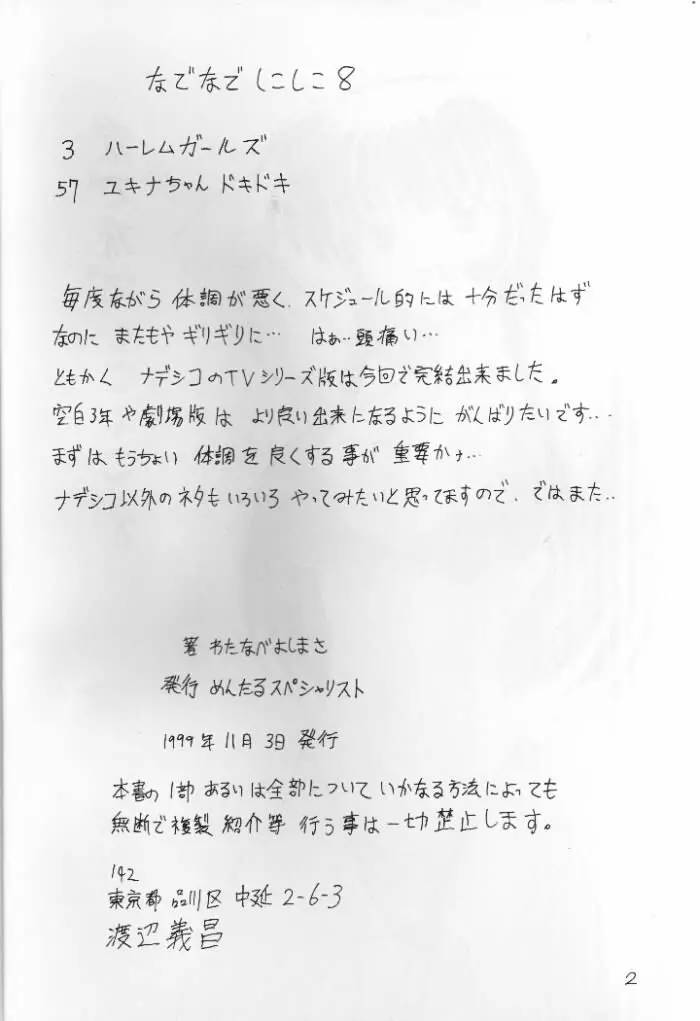 なでなでしこしこ8
3 ハーレムガールズ
57 ユキナちゃん ドキドキ
毎度ながら 体調が悪く、スケジュール的には 十分だったはず
なのに またもや ギリギリに… はぁ…頭痛い…
ともかく ナデシコのTVシリーズ版は今回で完結出来ました。
空白3年や劇場版は より良い出来になるように がんばりたいです…
まずは もうちょい 体調を良くする事が 重要かナ…
ナデシコ以外のネタもいろいろ やってみたいと思ってますので、ではまた..
著 わたなべよしまさ
発行 めんたるスペシャリスト
1999年 11月 3日 発行
本書の 1部 あるいは全部について いかなる方法によっても
無断で複製 紹介等 行う事は一切禁止します。
142
東京都 品川区 中延 2-6-3
渡辺義昌
2